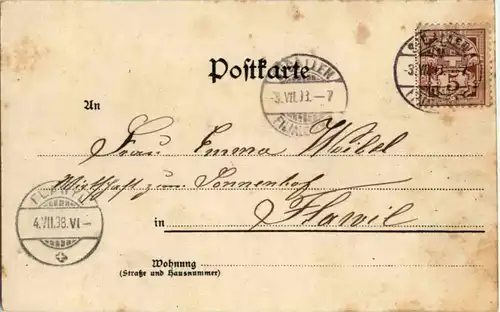 ST. GALLEN
-3.VII.
5
Postkarte
ST. GALLEN
-3.VII.98.-7
An
Frau Emma Weibel
Wirthschaft zum Sonnenhof
FLAWIL
4.VII.98.VI-
in Flawil
Wohnung
(Straße und Hausnummer)